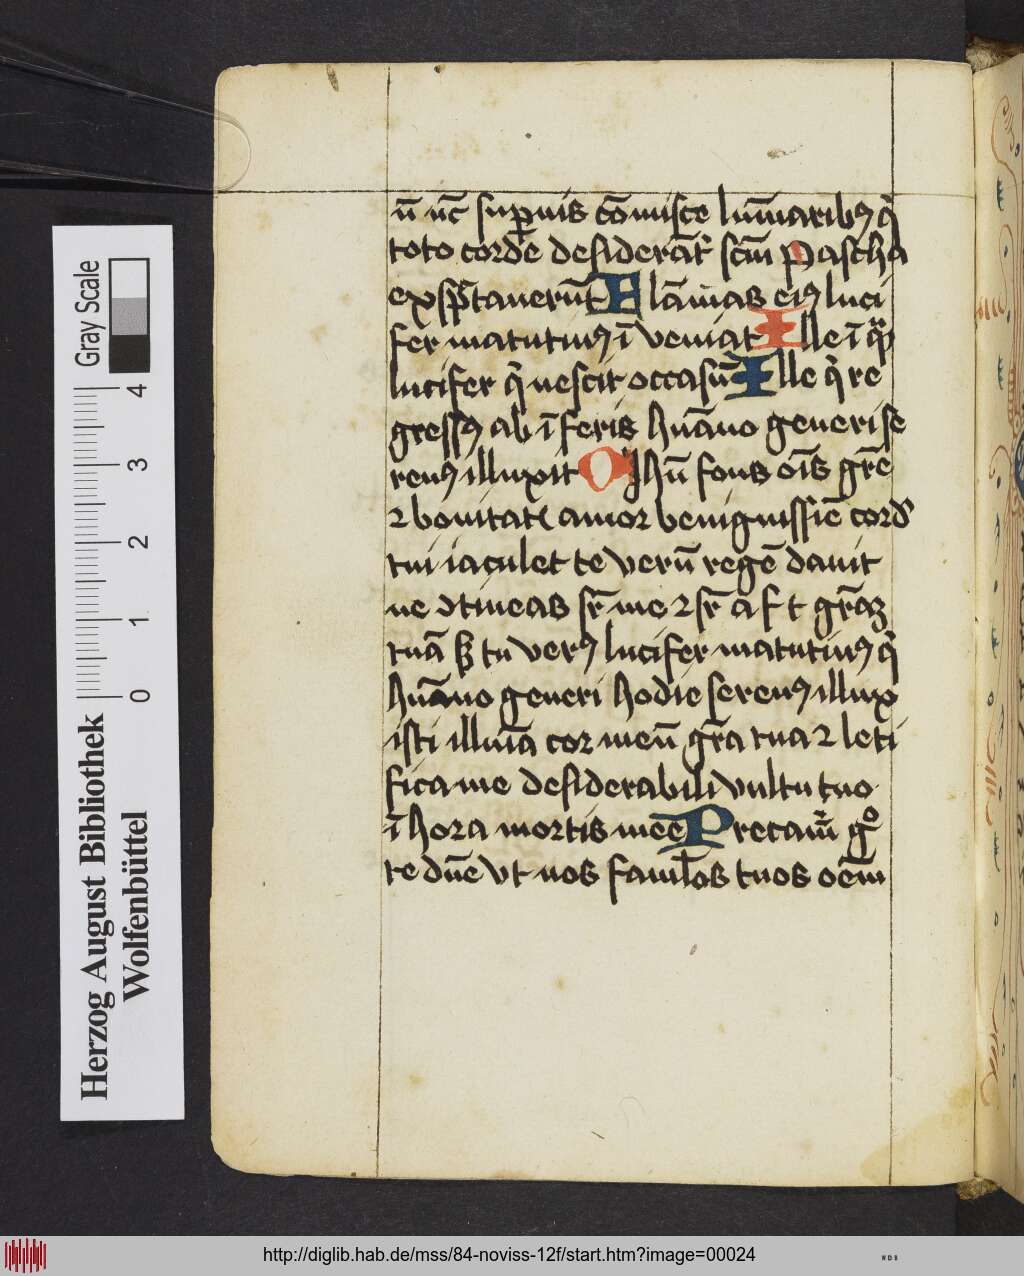 n̄ nūc suꝑnis cōmisce lumīaribꝰ q̇
toto corde desiderāt᷑ scm̄ pascha
exsp̄tauerūt Flāmas eiꝰ luci
fer matutinꝰ ī veniat Ille īq̄ꝫ
lucifer q̇ nescit occasū Ille q̇ re
gressꝰ ab īferis hūano generi se
renꝰ illuxit O Ihū fons oīs gr̄e
⁊ bonitatꝭ amor benignissīe cord̓
tui iaculet te verū regē dauit
ne ꝯtineas sr̄ me ⁊ sr̄ a f t gr̄aꝫ
tuā sꝫ tu verꝰ lucifer matutinꝰ q̇
hūano generi hodie serenꝰ illux
isti illuīa cor meū gr̄a tua ⁊ leti
fica me desiderabili vultu tuo
ī hora mortis mee Precam᷑ gͦ
te dn̄e vt nos famłos tuos oēm
Herzog August Bibliothek
Wolfenbüttel
Gray Scale
0 1 2 3 4
http://diglib.hab.de/mss/84-noviss-12f/start.htm?image=00024